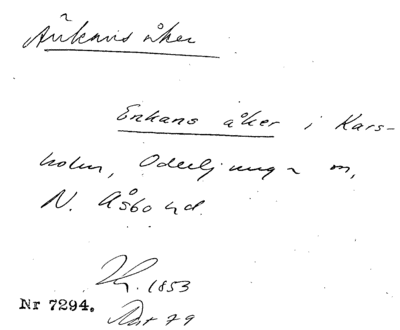 Änkans åker
Enkans åker i Kars-
holm, Oderljunga sn,
N. Åsbo hd.
1853
Nr 7294.
79